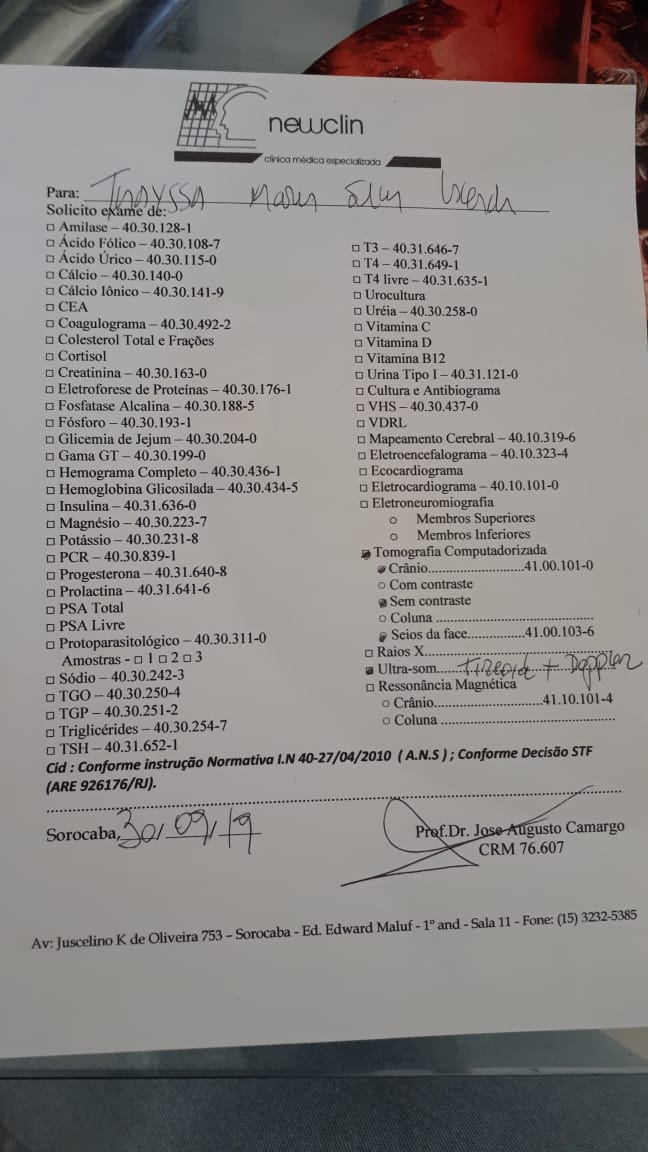 newclin
clínica médica especializada
Para: Thayssa
Solicito exame de:
□ Amilase – 40.30.128-1
□ Ácido Fólico – 40.30.108-7
□ Ácido Úrico – 40.30.115-0
□ Cálcio – 40.30.140-0
□ Cálcio Iônico – 40.30.141-9
□ CEA
□ Coagulograma – 40.30.492-2
□ Colesterol Total e Frações
□ Cortisol
□ Creatinina – 40.30.163-0
□ Eletroforese de Proteínas – 40.30.176-1
□ Fosfatase Alcalina – 40.30.188-5
□ Fósforo – 40.30.193-1
□ Glicemia de Jejum – 40.30.204-0
□ Gama GT – 40.30.199-0
□ Hemograma Completo – 40.30.436-1
□ Hemoglobina Glicosilada – 40.30.434-5
□ Insulina – 40.31.636-0
□ Magnésio – 40.30.223-7
□ Potássio – 40.30.231-8
□ PCR – 40.30.839-1
□ Progesterona – 40.31.640-8
□ Prolactina – 40.31.641-6
□ PSA Total
□ PSA Livre
□ Protoparasitológico – 40.30.311-0
Amostras - □ 1 □ 2 □ 3
□ Sódio – 40.30.242-3
□ TGO – 40.30.250-4
□ TGP – 40.30.251-2
□ Triglicérides – 40.30.254-7
□ TSH – 40.31.652-1
□ T3 – 40.31.646-7
□ T4 – 40.31.649-1
□ T4 livre – 40.31.635-1
□ Urocultura
□ Uréia – 40.30.258-0
□ Vitamina C
□ Vitamina D
□ Vitamina B12
□ Urina Tipo I – 40.31.121-0
□ Cultura e Antibiograma
□ VHS – 40.30.437-0
□ VDRL
□ Mapeamento Cerebral – 40.10.319-6
□ Eletroencefalograma – 40.10.323-4
□ Ecocardiograma
□ Eletrocardiograma – 40.10.101-0
□ Eletroneuromiografia
○ Membros Superiores
○ Membros Inferiores
Tomografia Computadorizada
Crânio..........................41.00.101-0
○ Com contraste
Sem contraste
○ Coluna ..........................................
Seios da face...............41.00.103-6
□ Raios X..................................................
Ultra-som.....Tireoide + Doppler
□ Ressonância Magnética
○ Crânio.............................41.10.101-4
○ Coluna ..............................................
Cid : Conforme instrução Normativa I.N 40-27/04/2010 ( A.N.S ) ; Conforme Decisão STF
(ARE 926176/RJ).
Sorocaba, 30/09/19
Prof.Dr. Jose Augusto Camargo
CRM 76.607
Av: Juscelino K de Oliveira 753 – Sorocaba - Ed. Edward Maluf - 1º and - Sala 11 - Fone: (15) 3232-5385